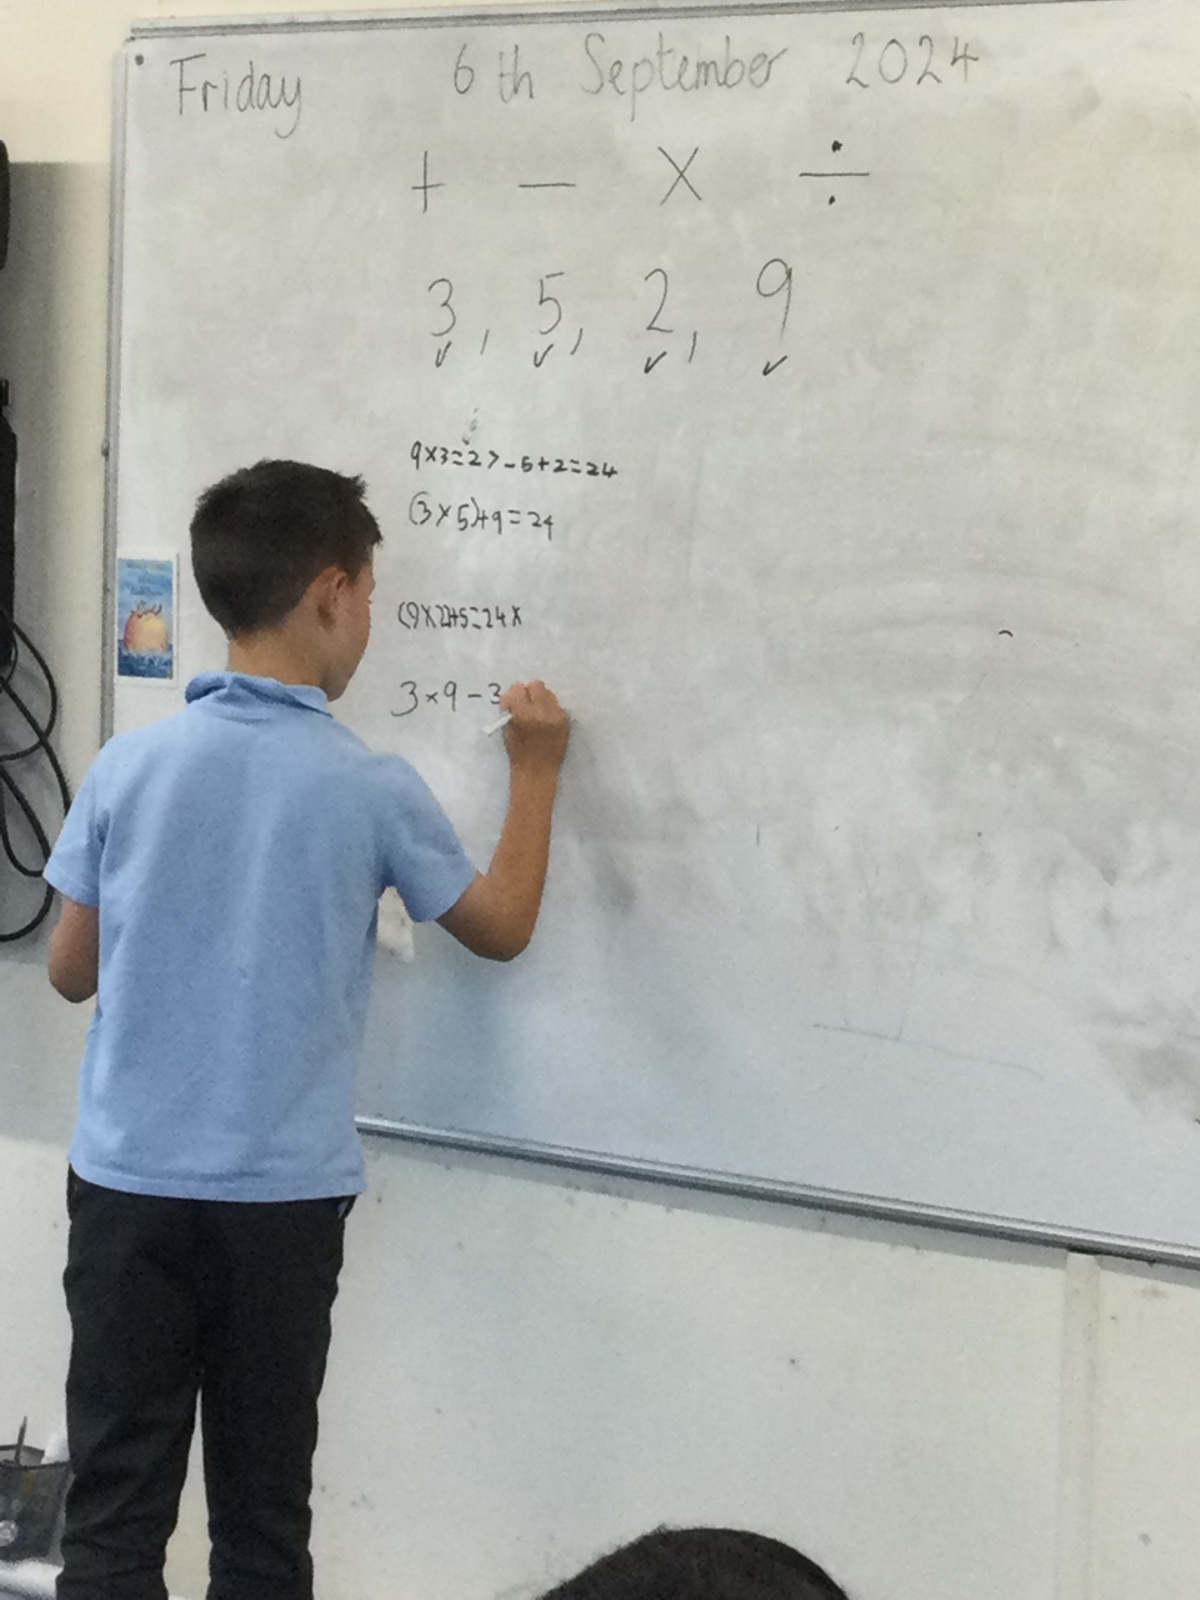 Friday 6th September 2024
+ − × ÷
3, 5, 2, 9
9×3=27-5+2=24
(3×5)+9=24
(9×2)+5=24×
3×9-3